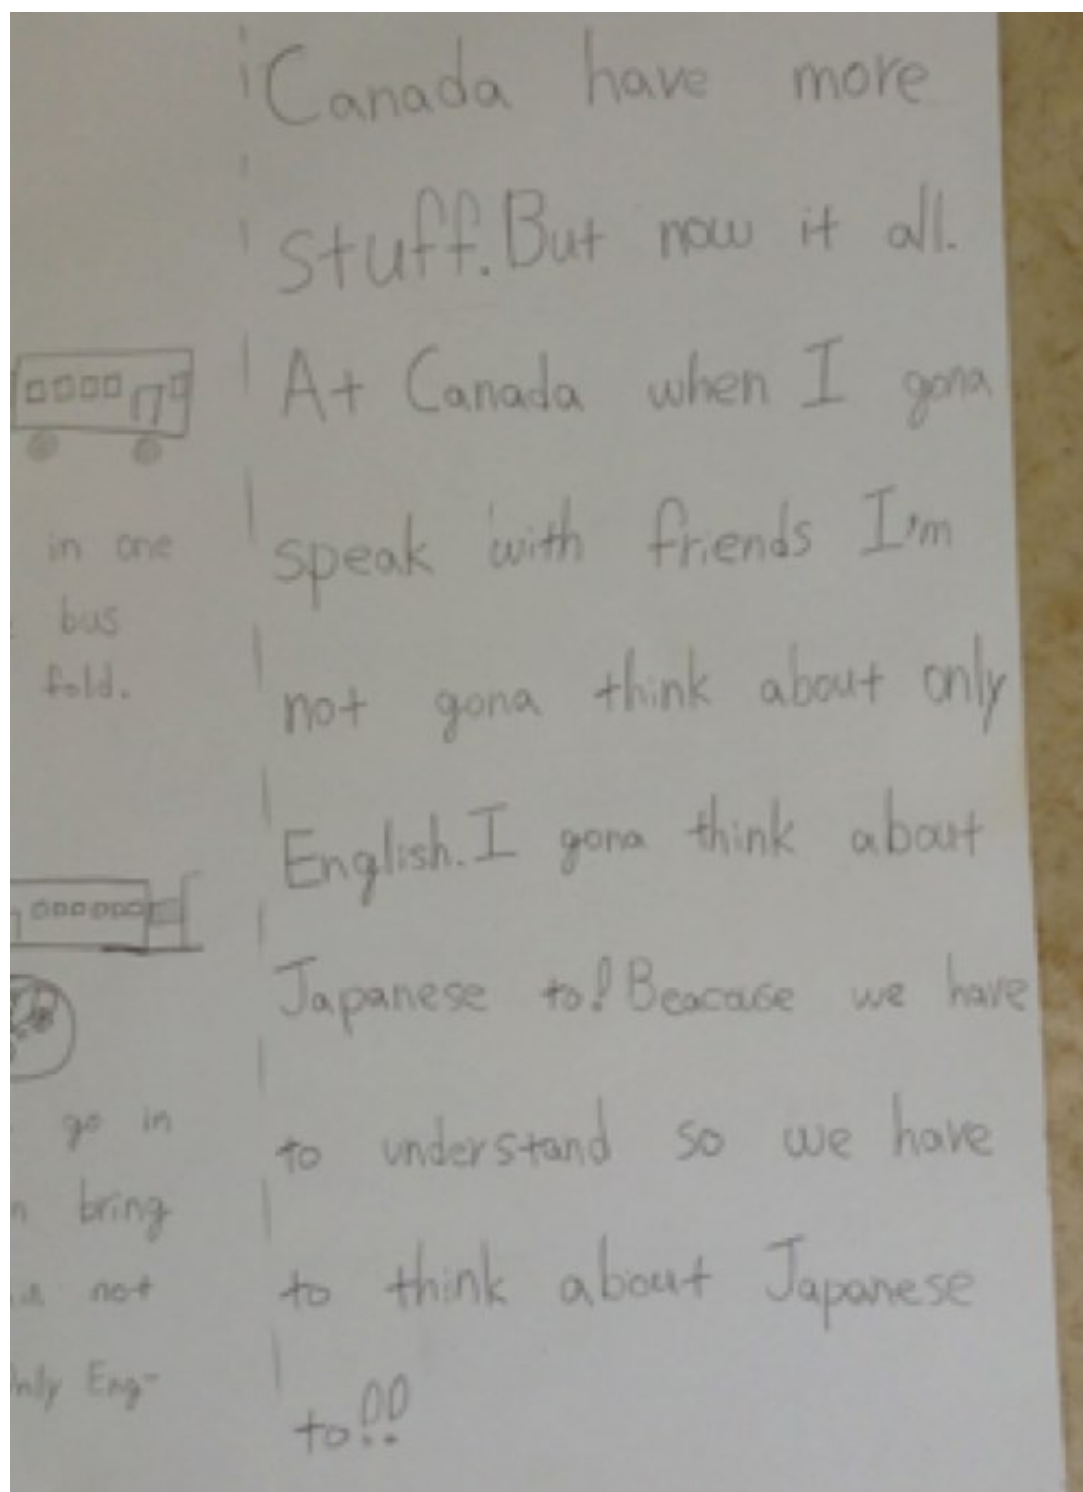 in one
bus
fold.
go in
bring
not
Eng-
Canada have more
stuff. But now it all.
At Canada when I gona
speak with friends I'm
not gona think about only
English. I gona think about
Japanese to! Beacase we have
to understand so we have
to think about Japanese
to!!